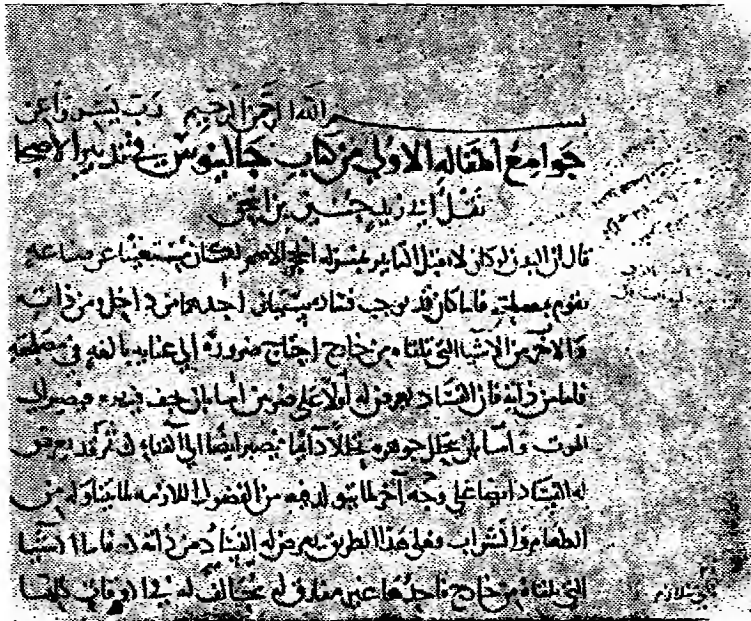 بسم الله الرحمن الرحيم رب يسر واعن
جوامع المقاله الاولى من كتاب جالينوس في تدبير الاصحا
نقل ابي زيد حنين بن اسحق
قال ان البدن لو كان لا يقبل التاثير بمنزله الحجر الاصم لكان مستغنيا عن صناعه
تقوم بمصلحته فلما كان قد يوجب فساده سببان احدهما من داخل ومن ذاته
والاخر من الاشيا التي تلقاه من خارج احتاج ضرورة الي عنايه بالغه في مصلحته
فاما من ذاته فان الفساد يعرض له اولا على ضربين اما بان يجف فيصير الى
الموت واما بان يتحلل جوهره تحللا دائما فيصير ايضا الي الفناء ثم قد يعرض
له الفساد ايضا على وجه آخر لما يتولد فيه من الفضول اللازمه لما يتناوله من
الطعام والشراب فعلى هذا الطريق يعرض له الفساد من ذاته فاما الاشيا
التي تلقاه من خارج فاحدها غير مفارق له مخالف له في الاوقات كلها